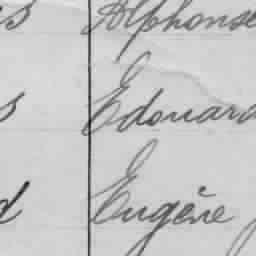 s Alphonse
s Edouard
d Eugène